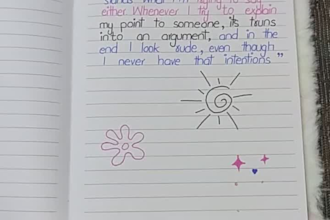 stands what I'm trying to say
either Whenever I try to explain
my point to someone, its truns
into an argument, and in the
end I look rude, even though
I never have that intentions"